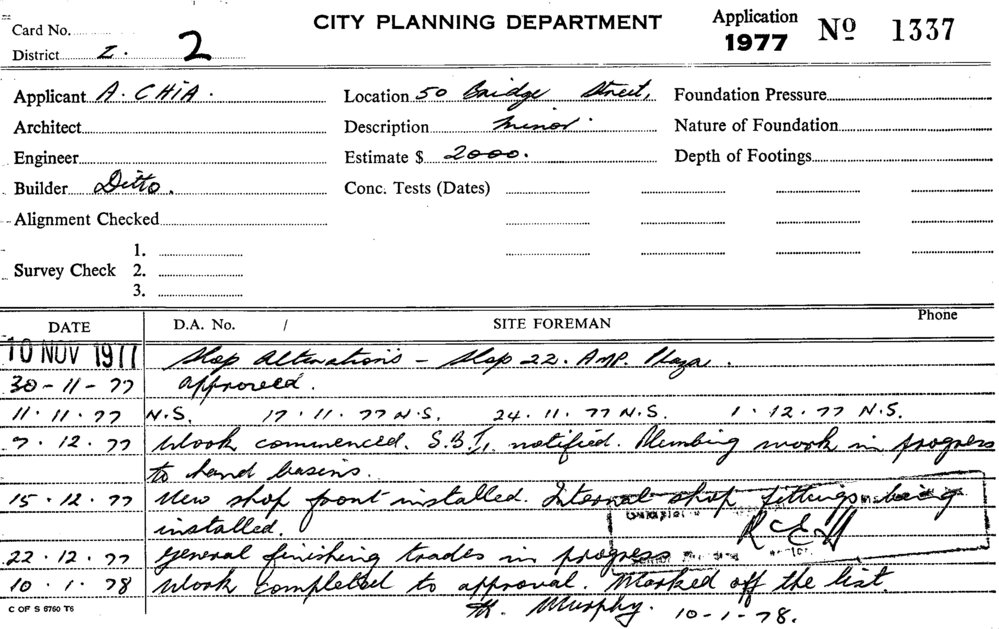 CITY PLANNING DEPARTMENT
Application 1977 Nº 1337
Card No.
District Z. 2
Applicant A. CHIA. Location 50 Bridge Street. Foundation Pressure
Architect Description minor. Nature of Foundation
Engineer Estimate $ 2000. Depth of Footings
Builder Ditto. Conc. Tests (Dates)
Alignment Checked
Survey Check 1.
2.
3.
DATE D.A. No. / SITE FOREMAN Phone
10 NOV 1977 Shop Alterations - Shop 22. AMP. Plaza.
30-11-77 approved.
11.11.77 N.S. 17.11.77 N.S. 24.11.77 N.S. 1.12.77 N.S.
7.12.77 Work commenced. notified. Plumbing work in progress
to hand basins.
15.12.77 New shop front installed. Internal shop fittings being
installed.
22.12.77 General finishing trades in progress
10.1.78 Work completed to approval. Marked off the list.
Murphy. 10-1-78.
C OF S 6760 T6